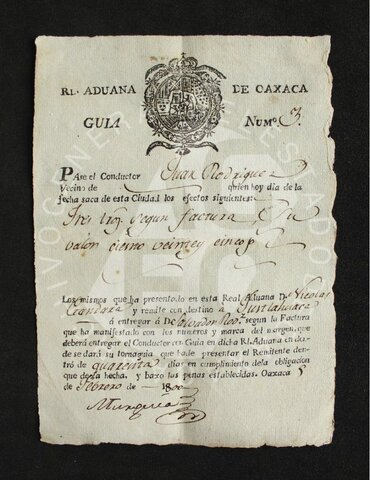 RL. ADUANA DE OAXACA
GUIA NUMº. 3.
PAse el Conductor Juan Rodriguez
Vecino de quien hoy dia de la
fecha saca de esta Ciudad los efectos siguientes:
Tres segun factura
valor ciento veinte y cinco p
Los mismos que ha presentado en esta Real Aduana D. Nicolas
y remite con destino a Justlahuaca
á entregar á D. Salvador segun la Factura
que ha manifestado con los numeros y marca del margen, que
deberá entregar el Conductor con Guia en dicha Rl. Aduana en don-
de se dará su tornaguia que ha de presentar el Remitente den-
tro de quarenta dias en cumplimiento de la obligacion
que dexa hecha, y baxo las penas establecidas. Oaxaca 5
de Febrero de 1800
Murguia